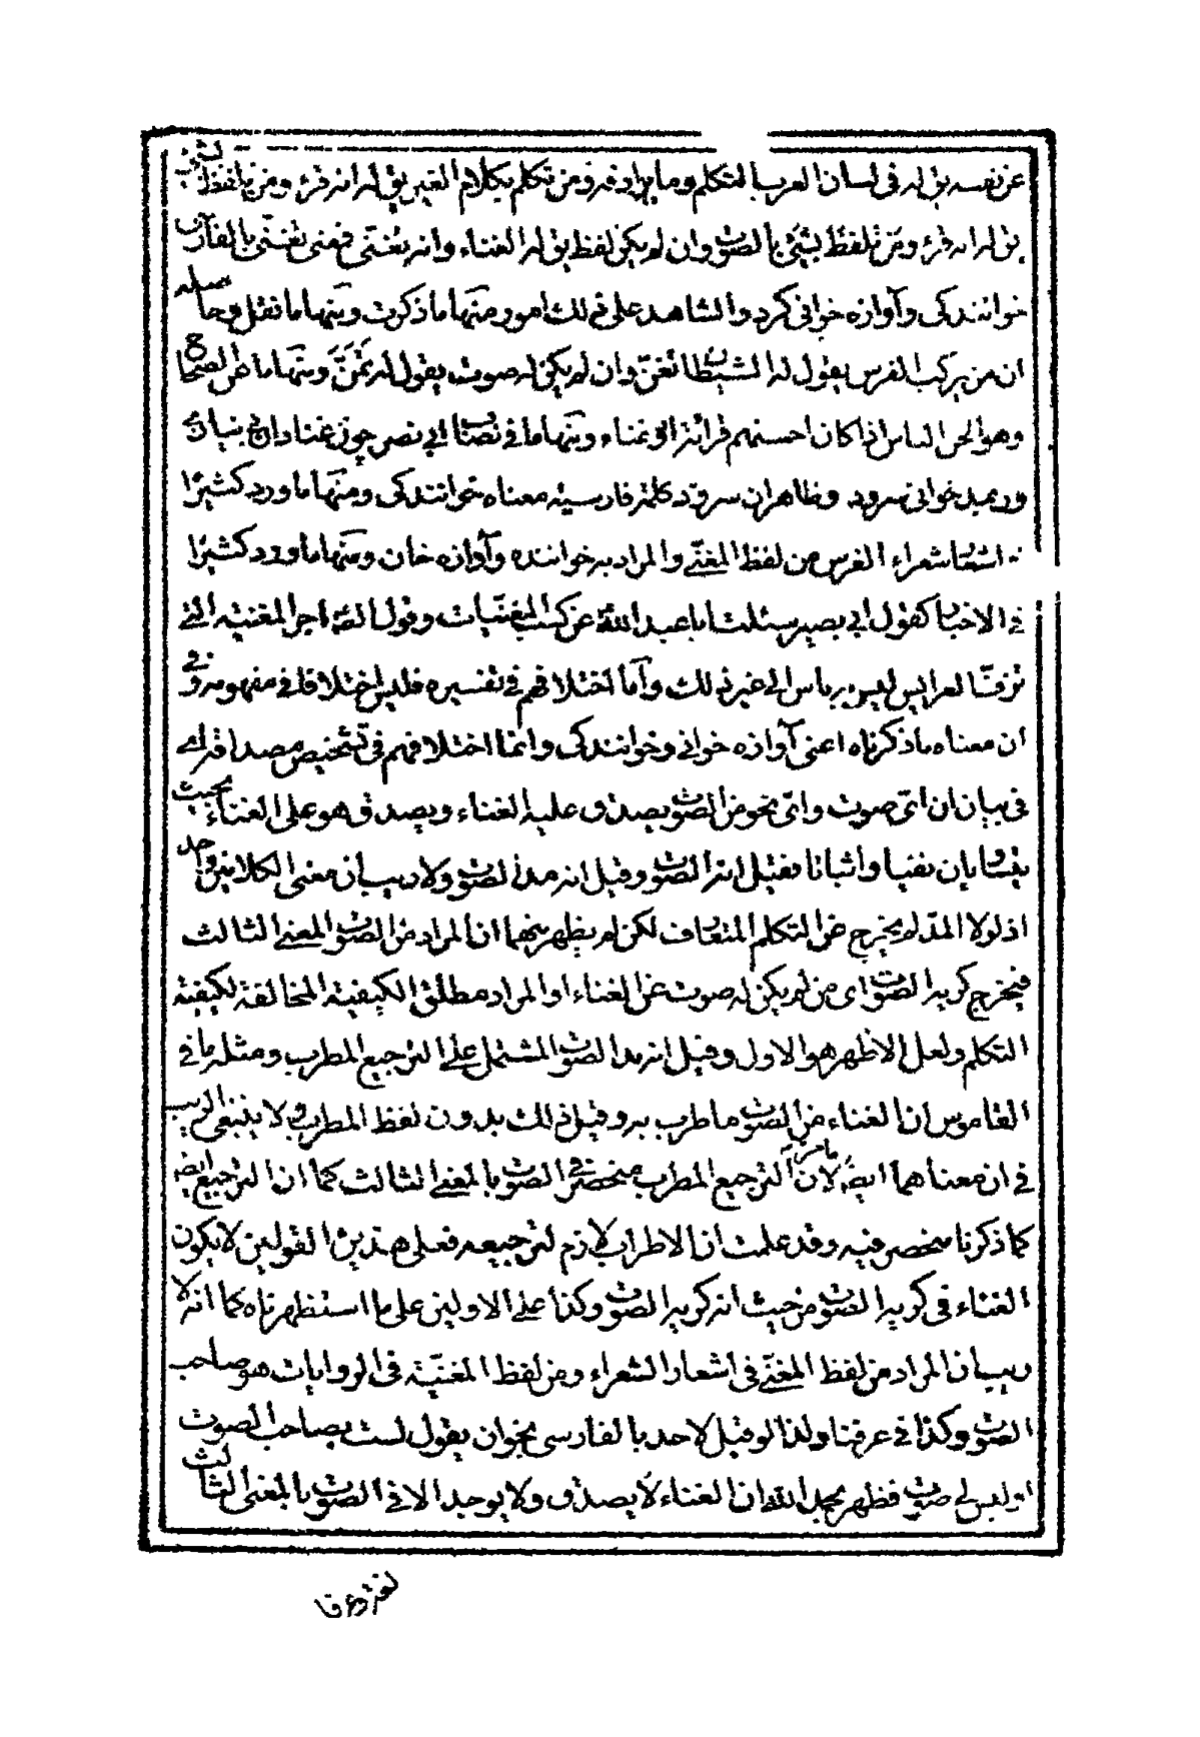 عن نفسه يق له فى لسان العرب المتكلم وما يرادفه ومن تكلم بكلام الغير يق له انه قرء ومن تلفظ بشئ
يق له انه قرء ومن تلفظ بشئ بالصوت وان لم يكن لفظ يق له الغناء وانه تغنى فمعنى تغنى بالفارسى
خوانندكى وآوازه خوانى كرد والشاهد على ذلك امور منها ما ذكرت ومنها ما نقل وحاصله
ان من يركب الفرس يقول له الشيطان تغن وان لم يكن له صوت يقول له تمن ومنها ما فى الصحاح
وهو الحن الناس اذا كان احسنهم قرائة او غناء ومنها ما فى نصاب ابى نصر چون غنا دان
خوانى سرود وظاهر ان سرود كلمة فارسية معناه خوانندكى ومنها ما ورد كثيرا
اشعار شعراء الفرس من لفظ المغنّى والمراد به خواننده وآوازه خان ومنها ما ورد كثيرا
فى الاخبار كقول ابى بصير سئلت ابا عبد الله عن كسب المغنيات وقول الصّ اجر المغنية التى
تزفّ العرايس ليس به باس الى غير ذلك وامّا اختلافهم فى تفسيره فليس اختلافا فى مفهومه وفى
ان معناه ما ذكرناه اعنى آوازه خوانى وخوانندكى وانما اختلافهم فى تشخيص مصداقه اى
فى بيان ان اىّ صوت واىّ نحو من الصوت يصدق عليه الغناء ويصدق هو على الغناء بحيث
يتساويان نفيا واثباتا فقيل انه الصوت وقيل انه مد الصوت ولا ريب ان معنى الكلامين واحد
اذ لولا المدّ لم يخرج عن التكلم المتعارف لكن لم يظهر منهما ان المراد من الصوت المعنى الثالث
فيخرج كريه الصوت اى من لم يكن له صوت عن الغناء او المراد مطلق الكيفية المخالفة لكيفية
التكلم ولعل الاظهر هو الاول وقيل انه مد الصوت المشتمل على الترجيع المطرب ومثله ما فى
القاموس ان الغناء من الصوت ما طرب به وقيل ذلك بدون لفظ المطرب ولا ينبغى الريب
فى ان معناهما ايضً ما مرّ لان الترجيع المطرب منحصر فى الصوت بالمعنى الثالث كما ان الترجيع ايضً
كما ذكرنا منحصر فيه وقد علمت ان الاطراب لازم لترجيعه فعلى هذين القولين لا يكون
الغناء فى كريه الصوت من حيث انه كريه الصوت وكذا على الاولين على ما استظهرناه كما انه لا
ريب ان المراد من لفظ المغنّى فى اشعار الشعراء ومن لفظ المغنيّة فى الروايات هو صاحب
الصوت وكذا فى عرفنا ولذا لو قيل لاحد بالفارسى بخوان يقول لست بصاحب الصوت
او ليس لى صوت فظهر بحمد الله ان الغناء لا يصدق ولا يوجد الا فى الصوت بالمعنى الثالث
لغة وعرفا